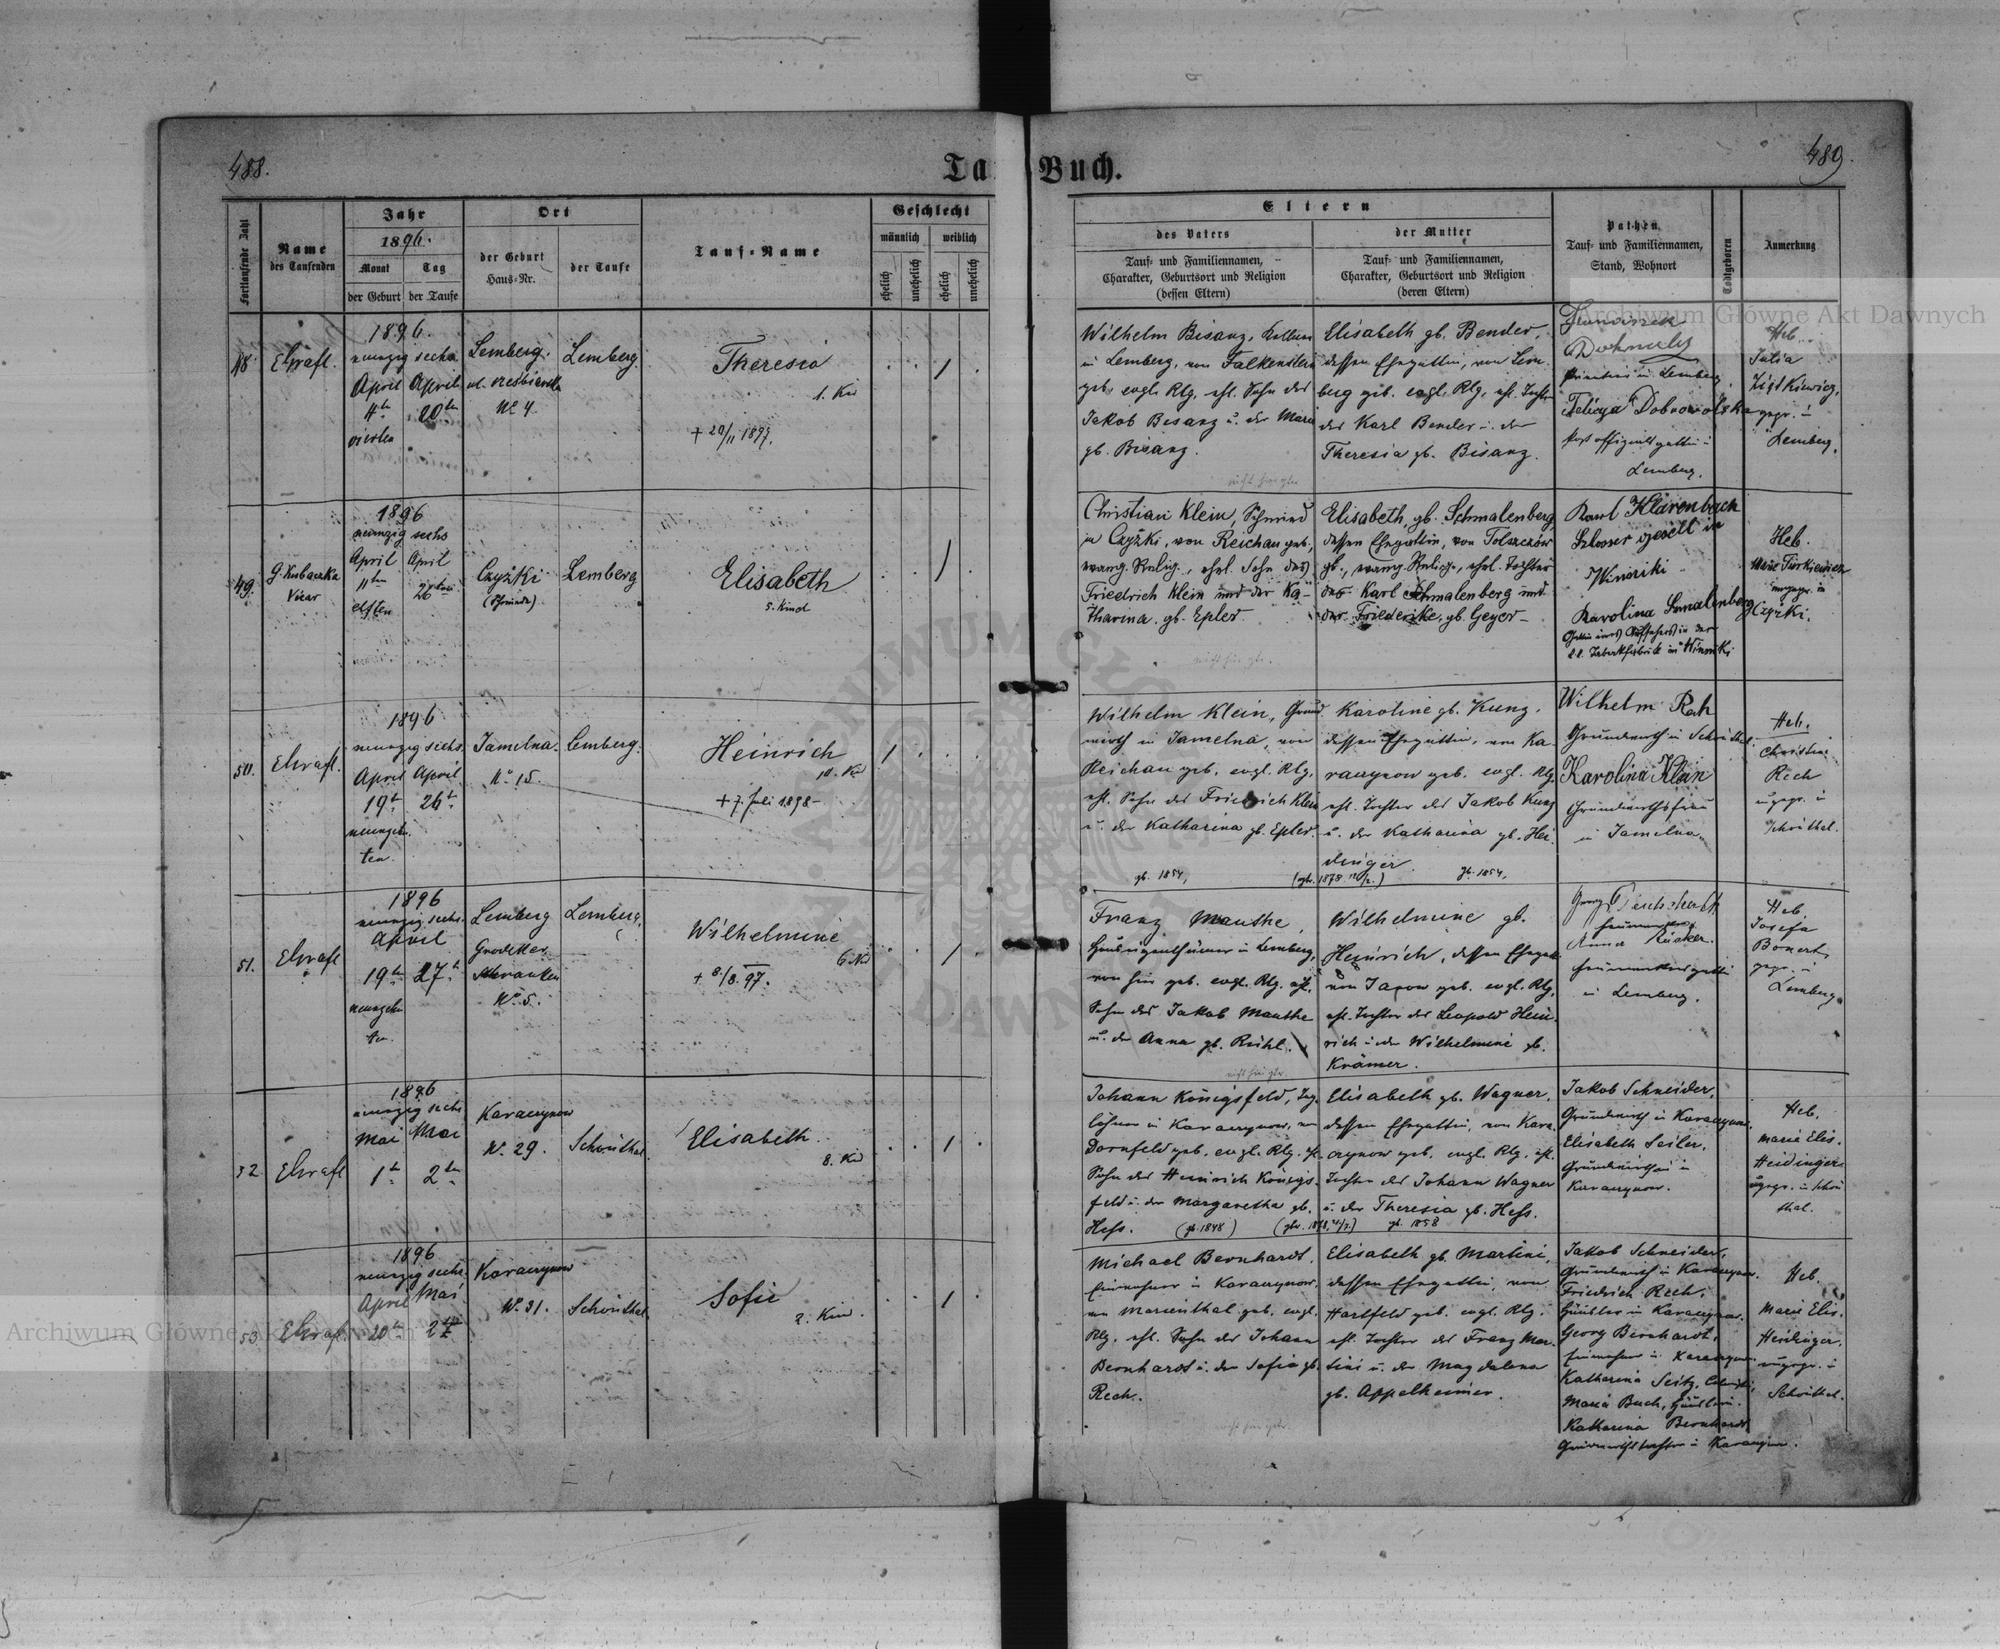 488.
Tauf-Buch.
489.
Fortlaufende Zahl
Name
des Taufenden
Jahr
1896.
Monat
Tag
der Geburt
der Taufe
Ort
der Geburt
Haus-Nr.
der Taufe
Tauf-Name
Geschlecht
männlich
weiblich
ehelich
unehelich
ehelich
unehelich
Eltern
des Vaters
Tauf- und Familiennamen,
Charakter, Geburtsort und Religion
(dessen Eltern)
der Mutter
Tauf- und Familiennamen,
Charakter, Geburtsort und Religion
(deren Eltern)
Pathen
Tauf- und Familiennamen,
Stand, Wohnort
Todtgeboren
Anmerkung
48.
1896.
neunzig sechs
April April
4ten 20ten
vierten
Lemberg.
No 4
Lemberg.
Theresia
1. Kind
+ 20/11 1897.
Wilhelm Bisanz,
in Lemberg, von Falkenstein
geb. evgl. Rlg. ehl. Sohn des
Jakob Bisanz u. der Maria
gb. Bisanz.
Elisabeth gb. Bender,
dessen Ehegattin, von Lem-
berg geb. evgl. Rlg. ehl. Tochter
des Karl Bender u. der
Theresia gb. Bisanz.
Felicya Dobrowolska
Lemberg.
Heb.
Julia
gepr. in
Lemberg.
49.
G. Kubaczka
Vicar
1896
neunzig sechs
April April
11ten 26ten
elften
Czyżki
Lemberg
Elisabeth
5. Kind
Christian Klein, Schmied
in Czyżki, von Reichau geb.,
evang. Relig., ehel. Sohn des
Friedrich Klein und der Ka-
tharina gb. Epler
Elisabeth, gb. Schmalenberg
dessen Ehegattin, von Tolszczów
gb., evang. Relig., ehel. Tochter
des Karl Schmalenberg und
der Friederike, gb. Geyer
Karl Klarenbach
Winniki
Karolina Schmalenberg
Heb.
Czyżki.
50.
1896
neunzig sechs
April April
19t. 26t.
neunzehn-
ten.
Jamelna.
No 15.
Lemberg.
Heinrich
10. Kind
+ 7. Juli 1898
Wilhelm Klein, Grund-
wirth in Jamelna, von
Reichau geb. evgl. Rlg.
ehl. Sohn des Friedrich Klein
u. der Katharina gb. Epler.
gb. 1854,
Karoline gb. Kunz,
dessen Ehegattin, von Ka-
raczynow geb. evgl. Rlg.
ehl. Tochter des Jakob Kunz
u. der Katharina gb. Hei-
dinger.
gb. 1854.
Wilhelm Reh
Grundwirth in Schönthal.
Karolina Klein
Grundwirthsfrau
in Jamelna.
Heb.
Christine
Rech
ungepr. in
Schönthal.
51.
1896
neunzig sechs.
April
19t. 27t.
neunzehn-
ten.
Lemberg
Grodeker
Schranken
No 5.
Lemberg.
Wilhelmine
6. Kind
+ 8/8. 97.
Franz Manthe,
Hauseigenthümer in Lemberg,
von hier geb. evgl. Rlg. ehl.
Sohn des Jakob Manthe
u. der Anna gb. Rühl.
Wilhelmine gb.
Heinrich, dessen Ehegattin
von Jarow geb. evgl. Rlg.
ehl. Tochter des Leopold Hein-
rich u. der Wilhelmine gb.
Krämer.
in Lemberg.
Heb.
Josefa
gepr. in
Lemberg.
52
1896
neunzig sechs
Mai Mai
1t. 2ten
Karaczynow
No. 29.
Schönthal
Elisabeth
8. Kind
Johann Königsfeld, Tag-
löhner in Karaczynow, von
Dornfeld geb. evgl. Rlg. ehl.
Sohn des Heinrich Königs-
feld u. der Margaretha gb.
Hess. (gb. 1848)
Elisabeth gb. Wagner,
dessen Ehegattin, von Kara-
czynow geb. evgl. Rlg. ehl.
Tochter des Johann Wagner
u. der Theresia gb. Hess.
gb. 1858
Jakob Schneider,
Grundwirth in Karaczynow.
Elisabeth Seiler,
Grundwirthin in
Karaczynow.
Heb.
Marie Elis.
Heidinger
ungepr. in Schön-
thal.
53
1896
neunzig sechs.
April Mai
20t. 2t.
Karaczynow
No. 31.
Schönthal
Sofie
2. Kind.
Michael Bernhardt,
Einwohner in Karaczynow,
von Marienthal geb. evgl.
Rlg. ehl. Sohn des Johann
Bernhardt u. der Sofia gb.
Rech.
Elisabeth gb. Martini,
dessen Ehegattin, von
Hartfeld geb. evgl. Rlg.
ehl. Tochter des Franz Mar-
tini u. der Magdalena
gb. Appelheimer.
Jakob Schneider,
Grundwirth in Karaczynow.
Friedrich Rech,
Häusler in Karaczynow.
Georg Bernhardt,
Einwohner in Karaczynow.
Katharina Seitz,
Maria Buch,
Katharina Bernhardt
Grundwirthstochter in Karaczynow.
Heb.
Marie Elis.
Heidinger.
ungepr. in
Schönthal.
Archiwum Główne Akt Dawnych
Archiwum Główne Akt Dawnych